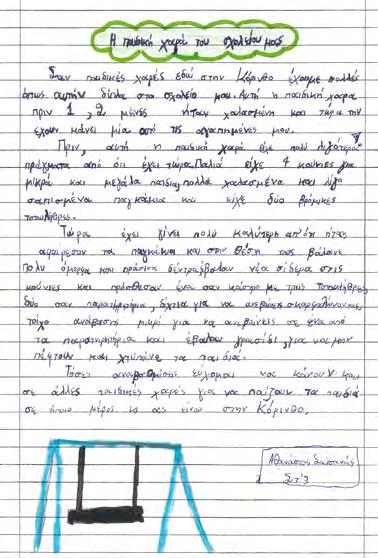 Η παιδική χαρά του σχολείου μας
Σαν παιδικές χαρές εδώ στην Κόρινθο έχουμε πολλές
όπως αυτήν δίπλα στο σχολείο μου. Αυτή η παιδική χαρά
πριν 1, 2 μήνες ήταν χαλασμένη και τώρα την
έχουν κάνει μία από τις αγαπημένες μου.
Πριν, αυτή η παιδική χαρά είχε πολύ λιγότερα
πράγματα από ότι έχει τώρα. Παλιά είχε 4 κούνιες για
μικρά και μεγάλα παιδιά, πολλά χαλασμένα και λίγο
σαπισμένα παγκάκια και είχε δύο βρόμικες
τσουλήθρες.
Τώρα έχει γίνει πολύ καλύτερη απ'ότι ήταν
αφαίρεσαν τα παγκάκια και στην θέση τους βάλανε
πολύ όμορφα και πράσινα δέντρα, έβαλαν νέα σίδερα στις
κούνιες και πρόσθεσαν ένα σαν κάστρο με τρεις τσουλήθρες,
δύο σαν παρατηρητήρια, δίχτυα για να ανεβαίνεις σκαρφαλώνοντας,
τοίχο αναρίχησης μικρό για να ανεβαίνεις σε ένα από
τα παρατηρητήρια και έβαλαν γρασίδι, για να μην
πέφτουν και χτυπάνε τα παιδιά.
Τέτοιες αναβαθμίσεις εύχομαι να κάνουν και
σε άλλες παιδικές χαρές για να παίζουν τα παιδιά
σε όποιο μέρος κι ας είναι στην Κόρινθο.
Αθανάσιος
Στ'3